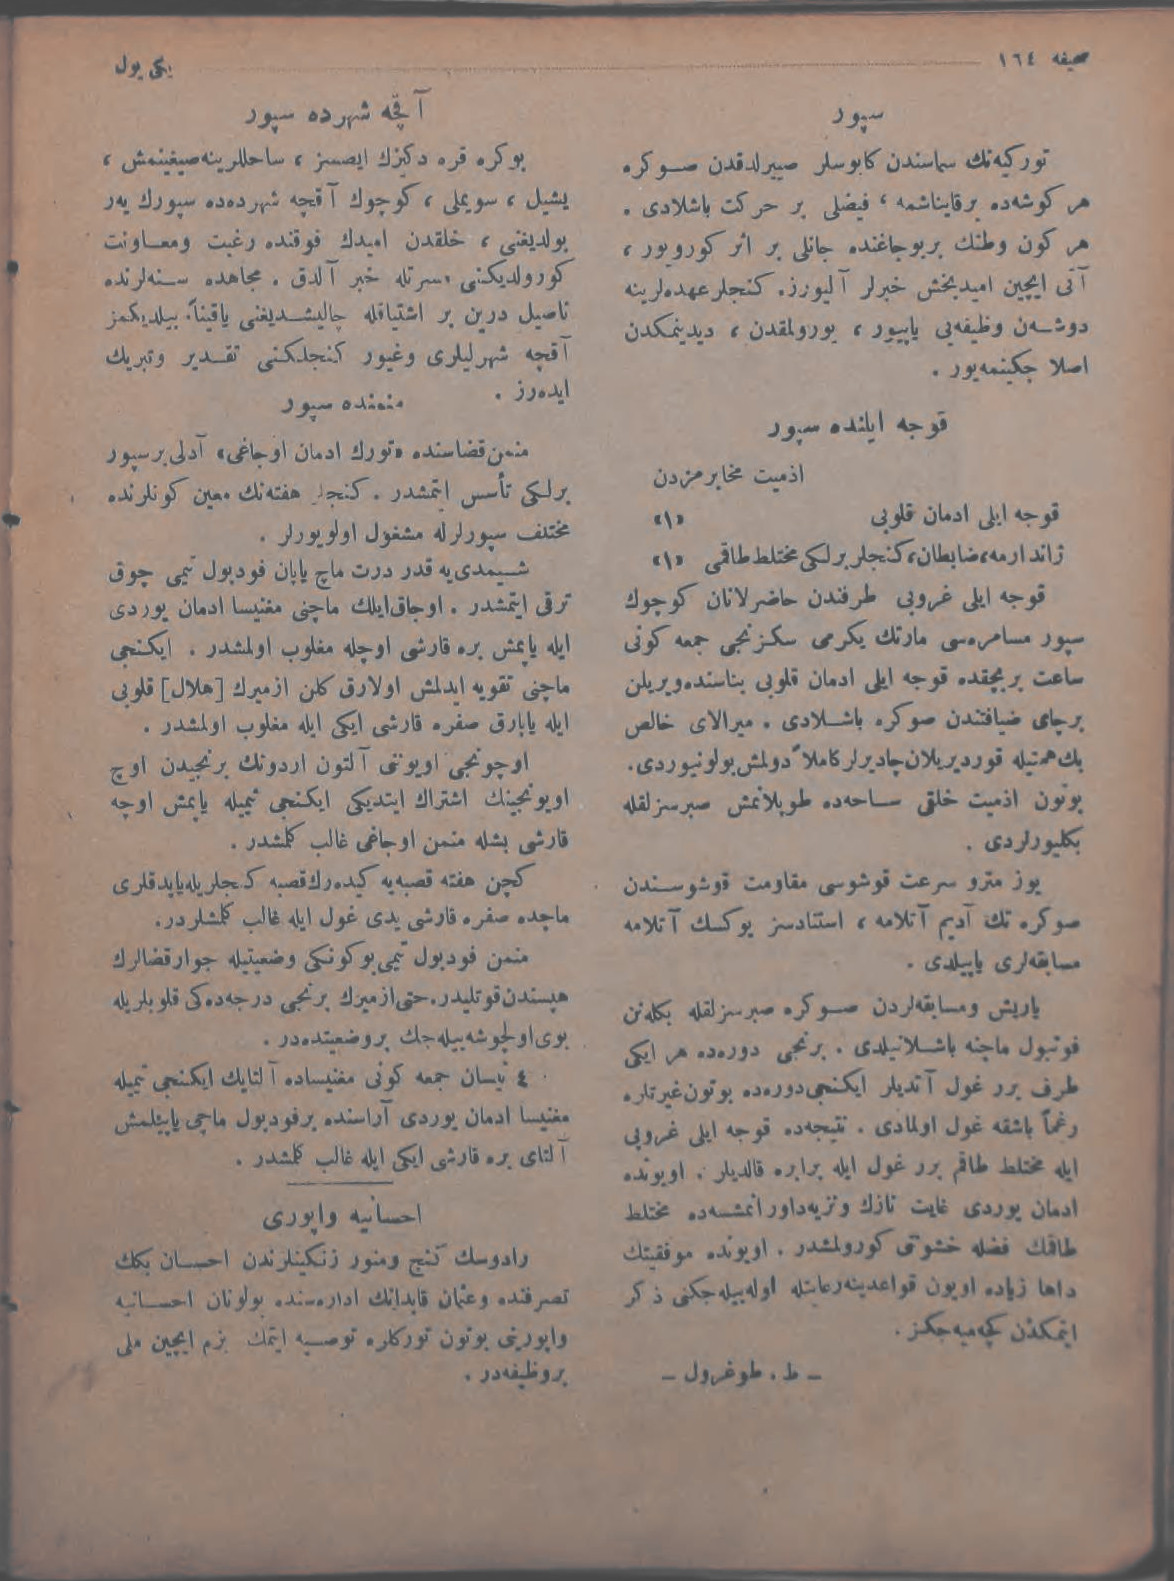 صحیفه ١٦٤
یکی یول
سپور
تورکیه‌نك سماسندن کابوسلر صییرلدقدن صوکره
هر کوشه‌ده برقایناشمه ، فیضلی بر حرکت باشلادی .
هر کون وطنك بربوجاغنده جانلی بر اثر کورویور ،
آتی ایچین امیدبخش خبرلر آلیورز. کنجلر عهده‌لرینه
دوشه‌ن وظیفه‌یی یاپیور ، یورولمقدن ، دیدینمکدن
اصلا چکینمه‌یور .
قوجه ایلنده سپور
ازمیت مخابرمزدن
قوجه ایلی ادمان قلوبی «١»
ژاندارمه، ضابطان، کنجلر برلکی مختلط طاقمی «١»
قوجه ایلی غروبی طرفندن حاضرلانان کوچوك
سپور مسامره‌سی مارتك یکرمی سکزنجی جمعه کونی
ساعت بربچقده قوجه ایلی ادمان قلوبی بناسنده‌ویریلن
برچای ضیافتندن صوکره باشلادی . میرالای خالص
بك همتیله قوردیریلان چادیرلر کاملاً دولمش بولونیوردی.
بوتون ازمیت خلقی ساحه‌ده طوپلانمش صبرسزلقله
بکلیورلردی .
یوز مترو سرعت قوشوسی مقاومت قوشوسندن
صوکره تك آدیم آتلامه ، استنادسز یوکسك آتلامه
مسابقه‌لری یاپیلدی .
یاریش ومسابقه‌لردن صوکره صبرسزلقله بکله‌نن
فوتبول ماچنه باشلانیلدی . برنجی دوره‌ده هر ایکی
طرف برر غول آتدیلر ایکنجی‌دوره‌ده بوتون‌غیرتلره
رغماً باشقه غول اولمادی . نتیجه‌ده قوجه ایلی غروبی
ایله مختلط طاقم برر غول ایله برابره قالدیلر . اویونده
ادمان یوردی غایت نازك ونزیه‌داورانمشسه‌ده مختلط
طاقمك فضله خشونتی کورولمشدر . اویونده موفقیتك
داها زیاده اویون قواعدینه‌رعایتله اوله‌بیله‌جکنی ذکر
ایتمکدن کچمیه‌جکز .
ـ ط . طوغرول ـ
آقچه شهرده سپور
بوکره قره دکیزك ایصسز ، ساحللرینه‌صیغینمش ،
یشیل ، سویملی ، کوچوك آقچه شهرده‌ده سپورك یه‌ر
بولدیغنی ، خلقدن امیدك فوقنده رغبت ومعاونت
کورولدیکنی مسرتله خبر آلدق . مجاهده سنه‌لرنده
ناصیل درین بر اشتیاقله چالیشدیغنی یاقیناً بیلدیکمز
آقچه شهرلیلری وغیور کنجلکنی تقدیر وتبریك
ایده‌رز .
منمنده سپور
منمن‌قضاسنده «تورك ادمان اوجاغی» آدلی‌برسپور
برلکی تأسس ایتمشدر . کنجلر هفته‌نك معین کونلرنده
مختلف سپورلرله مشغول اولویورلر .
شیمدی‌یه قدر درت ماچ یاپان فودبول تیمی چوق
ترقی ایتمشدر . اوجاق‌ایلك ماچنی مغنیسا ادمان یوردی
ایله یاپمش بره قارشی اوچله مغلوب اولمشدر . ایکنجی
ماچنی تقویه ایدلمش اولارق کلن ازمیرك [هلال] قلوبی
ایله یاپارق صفره قارشی ایکی ایله مغلوب اولمشدر .
اوچونجی اویوننی آلتون اردونك برنجیدن اوچ
اویونجینك اشتراك ایتدیکی ایکنجی تیمیله یاپمش اوچه
قارشی بشله منمن اوجاغی غالب کلمشدر .
کچن هفته قصبه‌یه کیده‌رك‌قصبه کنجلریله‌یاپدقلری
ماچده صفره قارشی یدی غول ایله غالب کلمشلردر.
منمن فودبول تیمی‌بوکونکی وضعیتیله جوارقضالرك
هپسندن‌قوتلیدر.حتی‌ازمیرك برنجی درجه‌ده‌کی قلوبلریله
بوی‌اولچوشه‌بیله‌جك بروضعیتده‌در .
٤ نیسان جمعه کونی مغنیساده آلتایك ایکنجی تیمیله
مغنیسا ادمان یوردی آراسنده برفودبول ماچی یاپیلمش
آلتای بره قارشی ایکی ایله غالب کلمشدر .
احسانیه واپوری
رادوسك کنج ومنور زنکینلرندن احسان بکك
تصرفنده وعثمان قاپدانك اداره‌سنده بولونان احسانیه
واپورینی بوتون تورکلره توصیه ایتمك بزم ایچین ملی
بروظیفه‌در .